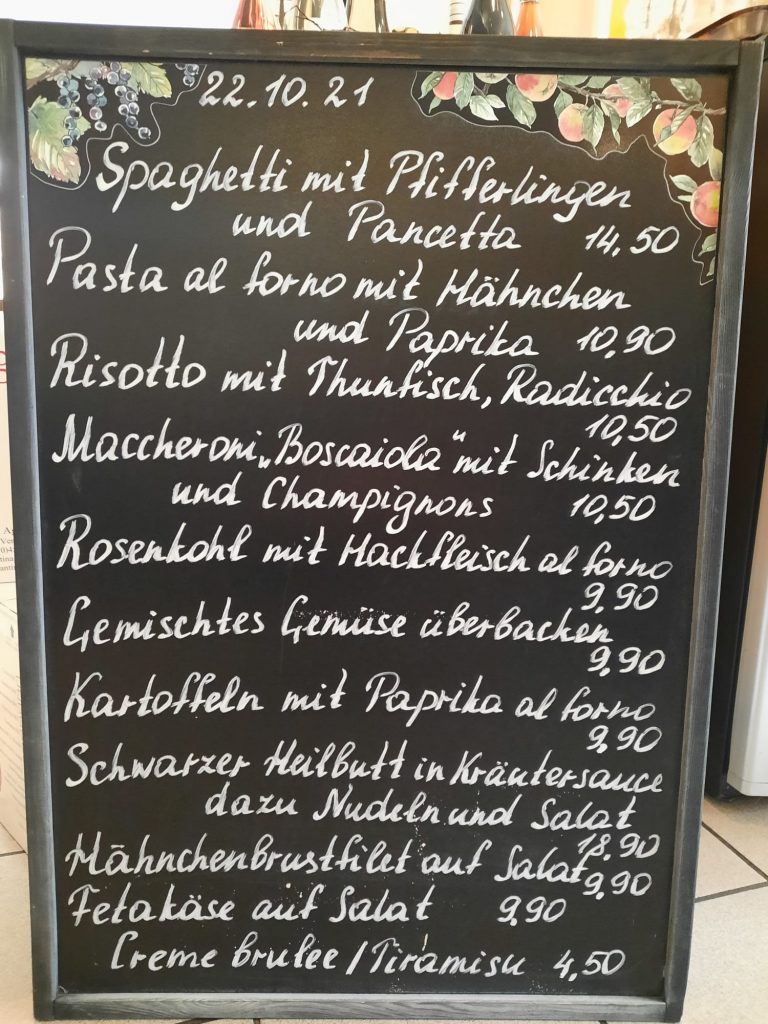 22.10.21
Spaghetti mit Pfifferlingen
und Pancetta 14,50
Pasta al forno mit Hähnchen
und Paprika 10,90
Risotto mit Thunfisch, Radicchio
10,50
Maccheroni „Boscaiola“ mit Schinken
und Champignons 10,50
Rosenkohl mit Hackfleisch al forno
9,90
Gemischtes Gemüse überbacken
9,90
Kartoffeln mit Paprika al forno
9,90
Schwarzer Heilbutt in Kräutersauce
dazu Nudeln und Salat
18.90
Hähnchenbrustfilet auf Salat 9,90
Fetakäse auf Salat 9,90
Creme brulee / Tiramisu 4,50